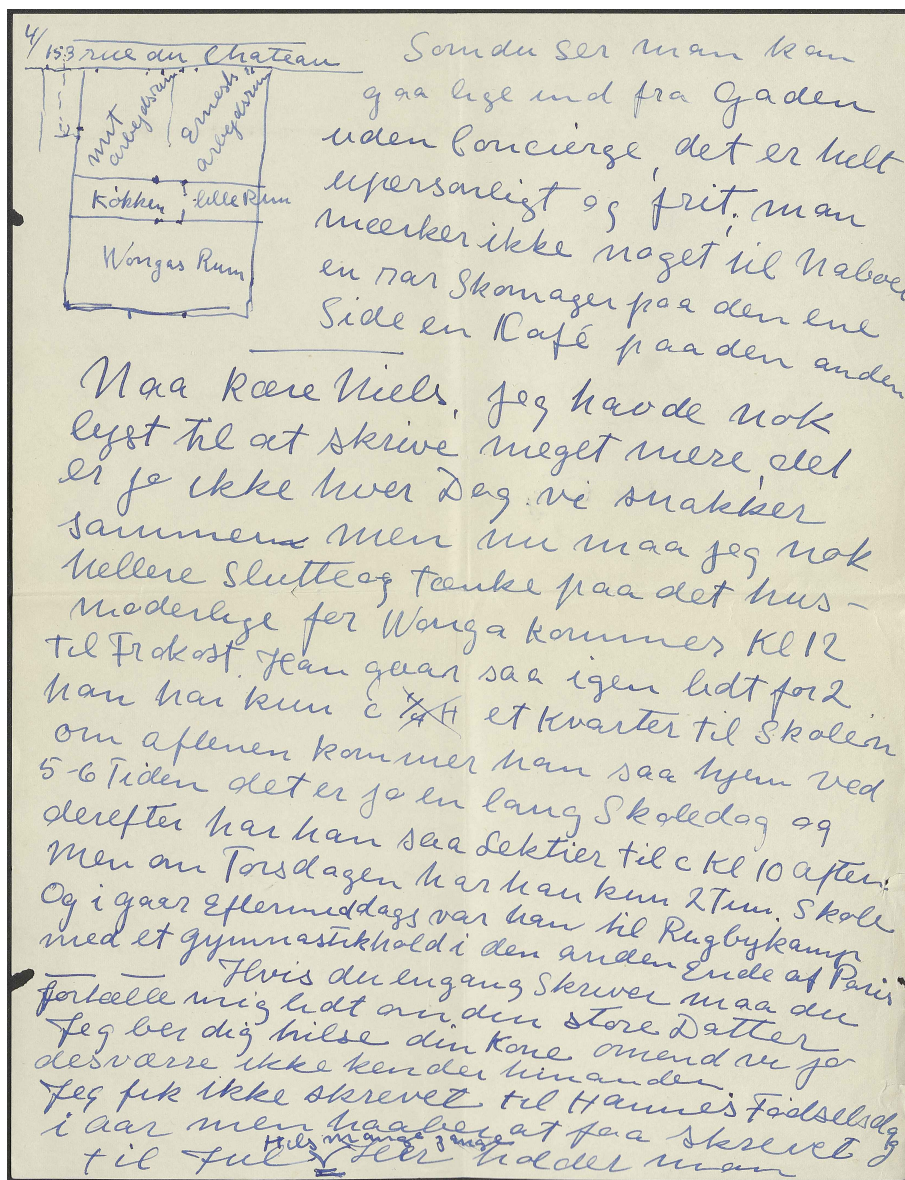 4/
153 rue du Chateau
mit arbejdsrum
Ernests arbejdsrum
Køkken
lille Rum
Wongas Rum
Som du ser man kan
gaa lige ind fra Gaden
uden Concierge, det er helt
upersonligt og frit, man
mærker ikke noget til Naboer
en rar Skomager paa den ene
Side en Café paa den anden
Naa kære Niels, jeg havde nok
lyst til at skrive meget mere, det
er jo ikke hver Dag vi snakker
sammen men nu maa jeg nok
hellere slutte og tænke paa det hus-
moderlige før Wonga kommer Kl 12
til Frokost. Han gaar saa igen lidt før 2
han har kun c et Kvarter til Skolen
om aftenen kommer han saa hjem ved
5-6 Tiden det er jo en lang Skoledag og
derefter har han saa Lektier til c Kl 10 Aften.
Men om Torsdagen har han kun 2 Tim. Skole
Og i gaar Eftermiddags var han til Rugbykamp
med et gymnastikhold i den anden Ende af Paris
Hvis du engang Skriver maa du
fortælle mig lidt om den store Datter
Jeg ber dig hilse din Kone omend vi jo
desværre ikke kender hinanden
Jeg fik ikke skrevet til Hannes Fødselsdag
i aar men haaber at faa skrevet
Hils mange gange
til Jul Her holder man